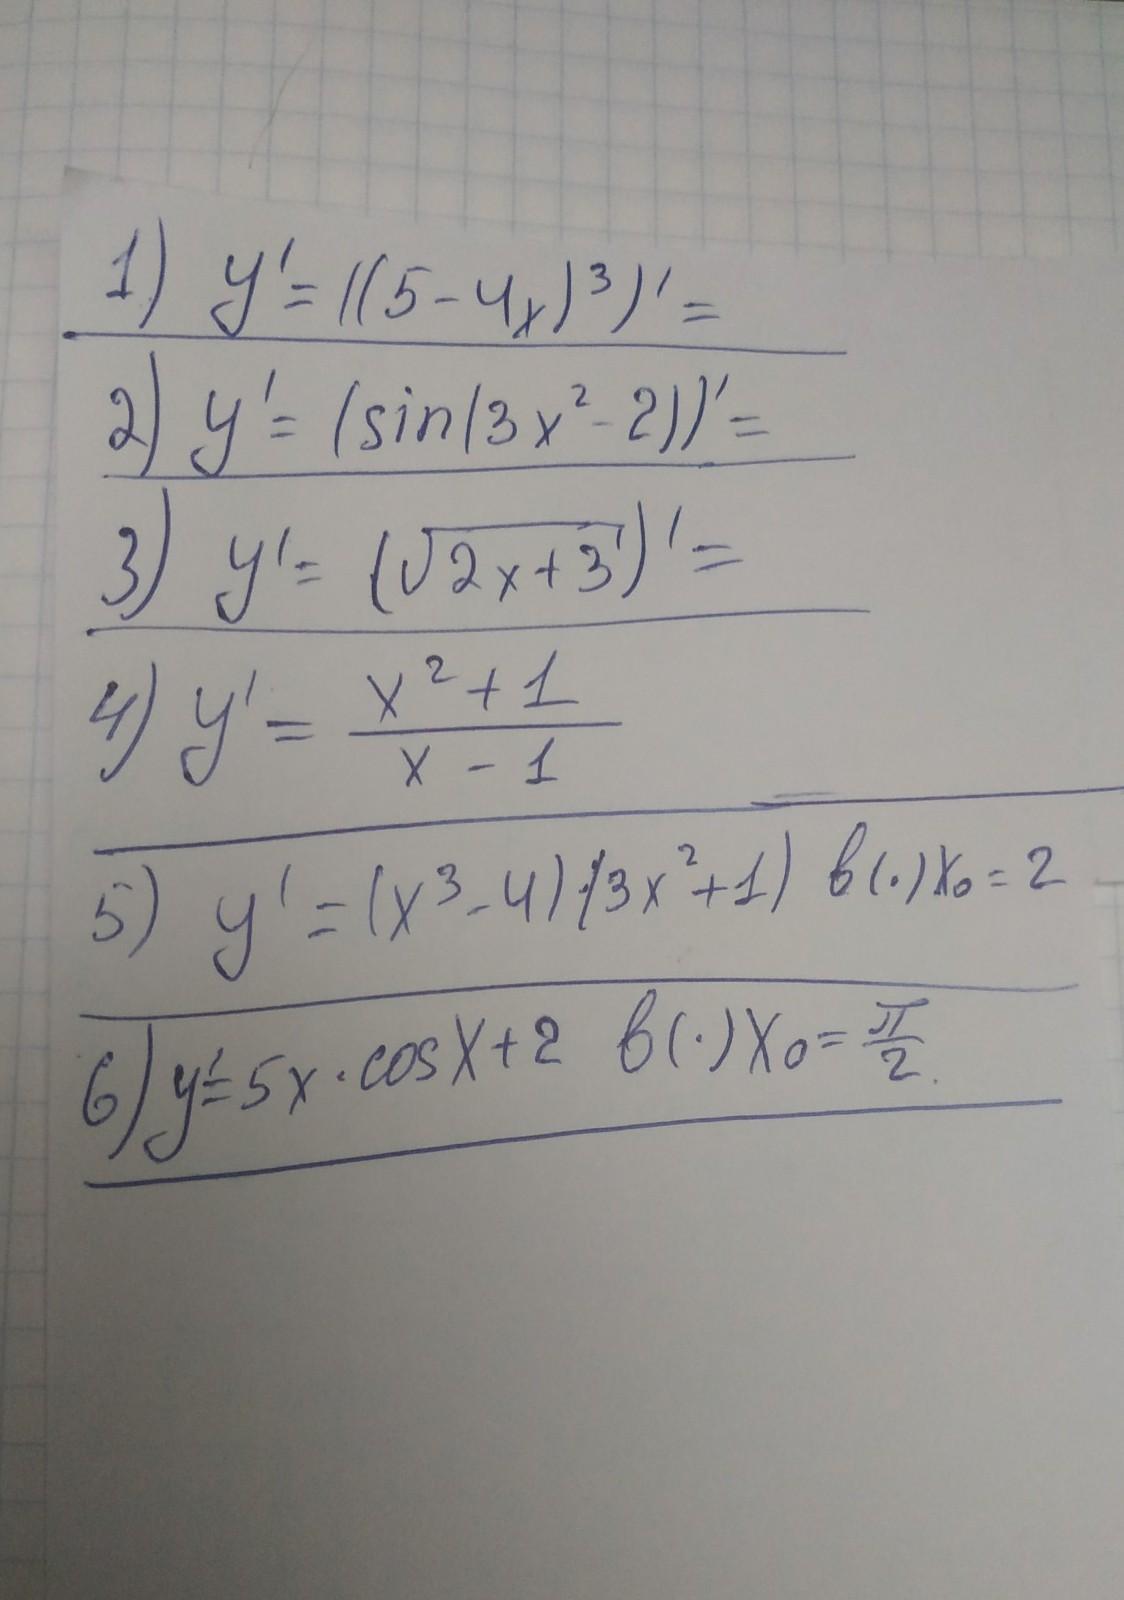 1) y' = ((5-4x)³)' =
2) y' = (sin(3x²-2))' =
3) y' = (√2x+3)' =
4) y' = x²+1
x-1
5) y' = (x³-4)·(3x²+1) в(·) x₀ = 2
6) y' = 5x·cosx+2 в(·) x₀ = π/2